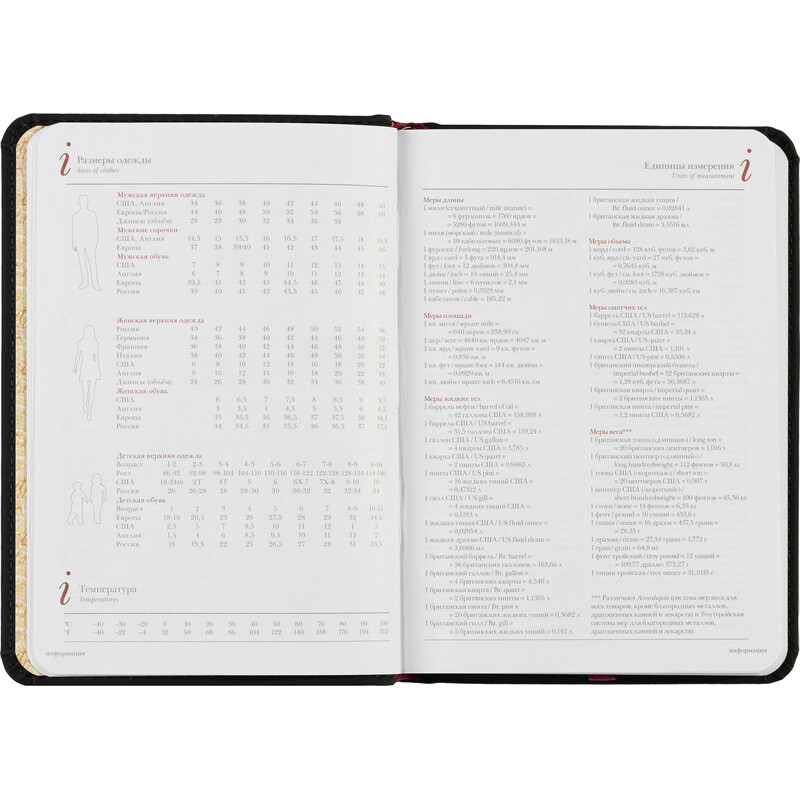 Размеры одежды
Sizes of clothes
Мужская верхняя одежда
США, Англия 34 36 38 40 42 44 46 48 50
Европа/Россия 44 46 48 50 52 54 56 58 60
Джинсы (объём) 28 29 30 32 34 36 38
Мужские сорочки
США, Англия 14,5 15 15,5 16 16,5 17 17,5 18 18,5
Европа 37 38 39/40 41 42 43 44 45 46
Мужская обувь
США 7 8 9 10 11 12 13 14 15
Англия 6 7 8 9 10 11 12 13 14
Европа 39,5 41 42 43 44,5 46 47 48 49
Россия 39 40 41 42 43,5 45 46 47 48
Женская верхняя одежда
Россия 40 42 44 46 48 50 52 54 56
Германия 34 36 38 40 42 44 46 48 50
Франция 36 38 40 42 44 46 48 50 52
Италия 38 40 42 44 46 48 50 52 54
США 6 8 10 12 14 16 18 20 22
Англия 8 10 12 14 16 18 20 22
Джинсы (объём) 24 26 28 30 32 34 36 38 40
Женская обувь
США 6 6,5 7 7,5 8 8,5 9 9,5
Англия 3 3,5 4 4,5 5 5,5 6 6,5
Европа 35 35,5 36 36,5 37 37,5 38 38,5
Россия 34 34,5 35 35,5 36 36,5 37 37,5
Детская верхняя одежда
Возраст 1-2 2-3 3-4 4-5 5-6 6-7 7-8 8-9 9-10
Рост 86-92 92-98 98-104 104-110 110-116 116-122 122-128 128-134 134-140
США 18-24m 2T 4T 5 6 6X-7 7X-8 9-10 10
Россия 26 26-28 28 28-30 30 30-32 32 32-34 34
Детская обувь
Возраст 1 2 3 4 5 6 7 8-9 10-11
США 2,5 5 7 9,5 10 11 12 1 3
Англия 1,5 4 6 8,5 9,5 10 11 13 2
Россия 18 19,5 22 25 26,5 27 28 31 33,5
Температура
Temperatures
°C –40 –30 –20 0 10 20 30 40 50 60 70 80 90 100
°F –40 –22 –4 32 50 68 86 104 122 140 158 176 194 212
информация
Единицы измерения
Units of measurement
Меры длины
1 миля (сухопутная) / mile (statute) =
= 8 фурлонгов = 1760 ярдов =
= 5280 футов = 1609,344 м
1 миля (морская) / mile (nautical) =
= 10 кабельтовых = 6080 футов = 1853,18 м
1 фурлонг / furlong = 220 ярдов = 201,168 м
1 ярд / yard = 3 фута = 914,4 мм
1 фут / foot = 12 дюймов = 304,8 мм
1 дюйм / inch = 10 линий = 25,4 мм
1 линия / line = 6 пунктов = 2,1 мм
1 пункт / point = 0,3528 мм
1 кабельтов / cable = 185,22 м
Меры площади
1 кв. миля / square mile =
= 640 акров = 258,99 га
1 акр / acre = 4840 кв. ярдов = 4047 кв. м
1 кв. ярд / square yard = 9 кв. футов =
= 0,836 кв. м
1 кв. фут / square foot = 144 кв. дюйма =
= 0,0929 кв. м
1 кв. дюйм / square inch = 6,4516 кв. см
Меры жидких тел
1 баррель нефти / barrel of oil =
= 42 галлона США = 158,988 л
1 баррель США / US barrel =
= 31,5 галлона США = 119,24 л
1 галлон США / US gallon =
= 4 кварты США = 3,785 л
1 кварта США / US quart =
= 2 пинты США = 0,9463 л
1 пинта США / US pint =
= 16 жидких унций США =
= 0,47312 л
1 гилл США / US gill =
= 4 жидких унций США =
= 0,1183 л
1 жидкая унция США / US fluid ounce =
= 0,02954 л
1 жидкая драхма США / US fluid dram =
= 3,6966 мл
1 британский баррель / Br. barrel =
= 36 британских галлонов = 163,66 л
1 британский галлон / Br. gallon =
= 4 британских кварты = 4,546 л
1 британская кварта / Br. quart =
= 2 британских пинты = 1,1365 л
1 британская пинта / Br. pint =
= 20 британских жидких унций = 0,5682 л
1 британский гилл / Br. gill =
= 5 британских жидких унций = 0,142 л
1 британская жидкая унция /
Br. fluid ounce = 0,02841 л
1 британская жидкая драхма /
Br. fluid dram = 3,5516 мл
Меры объема
1 корд / cord = 128 куб. футов = 3,62 куб. м
1 куб. ярд / cu. yard = 27 куб. футов =
= 0,7645 куб. м
1 куб. фут / cu. foot = 1728 куб. дюймов =
= 0,0283 куб. м
1 куб. дюйм / cu. inch = 16,387 куб. см
Меры сыпучих тел
1 баррель США / US barrel = 115,628 л
1 бушель США / US bushel =
= 32 кварты США = 35,24 л
1 кварта США / US quart =
= 2 пинты США = 1,101 л
1 пинта США / US pint = 0,5506 л
1 британский (имперский) бушель /
imperial bushel = 32 британских кварты =
= 1,28 куб. фута = 36,3687 л
1 британская кварта / imperial quart =
= 2 британских пинты = 1,1365 л
1 британская пинта / imperial pint =
= 1,2 пинты США = 0,5682 л
Меры веса***
1 британская тонна («длинная») / long ton =
= 20 британских центнеров = 1,016 т
1 британский центнер («длинный») /
long hundredweight = 112 фунтов = 50,8 кг
1 тонна США («короткая») / short ton =
= 20 центнеров США = 0,907 т
1 центнер США («короткий») /
short hundredweight = 100 фунтов = 45,36 кг
1 стоун / stone = 14 фунтов = 6,35 кг
1 фунт / pound = 16 унций = 453,6 г
1 унция / ounce = 16 драхм = 437,5 грана =
= 28,35 г
1 драхма / dram = 27,34 грана = 1,772 г
1 гран / grain = 64,8 мг
1 фунт тройский / troy pound = 12 унций =
1 унция тройская / troy ounce = 31,1035 г
*** Различают Avoirdupois (система мер веса для
всех товаров, кроме благородных металлов,
драгоценных камней и лекарств) и Troy (тройская
система мер для благородных металлов,
драгоценных камней и лекарств).
информация